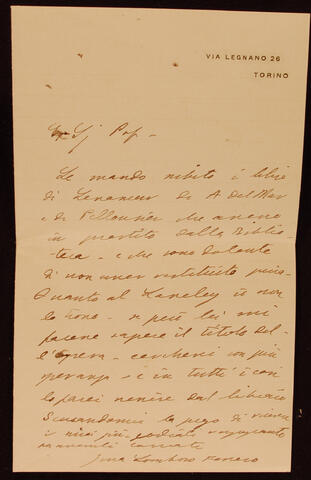 VIA LEGNANO 26
TORINO
Prof -
Le mando subito i libri
di Lenormant di A Del Mar
e di Pellourier che avevo
in prestito dalla Biblio-
teca - e che sono dolente
di non aver restituito prima
Quanto al io non
lo trovo - e però lei mi
facesse sapere il titolo del-
l'opera - cercherei con più
speranza e in tutti i casi
lo farei venire dal libraio
Scusandomi la prego di
i miei più cordiali
Gina Lombroso Ferrero